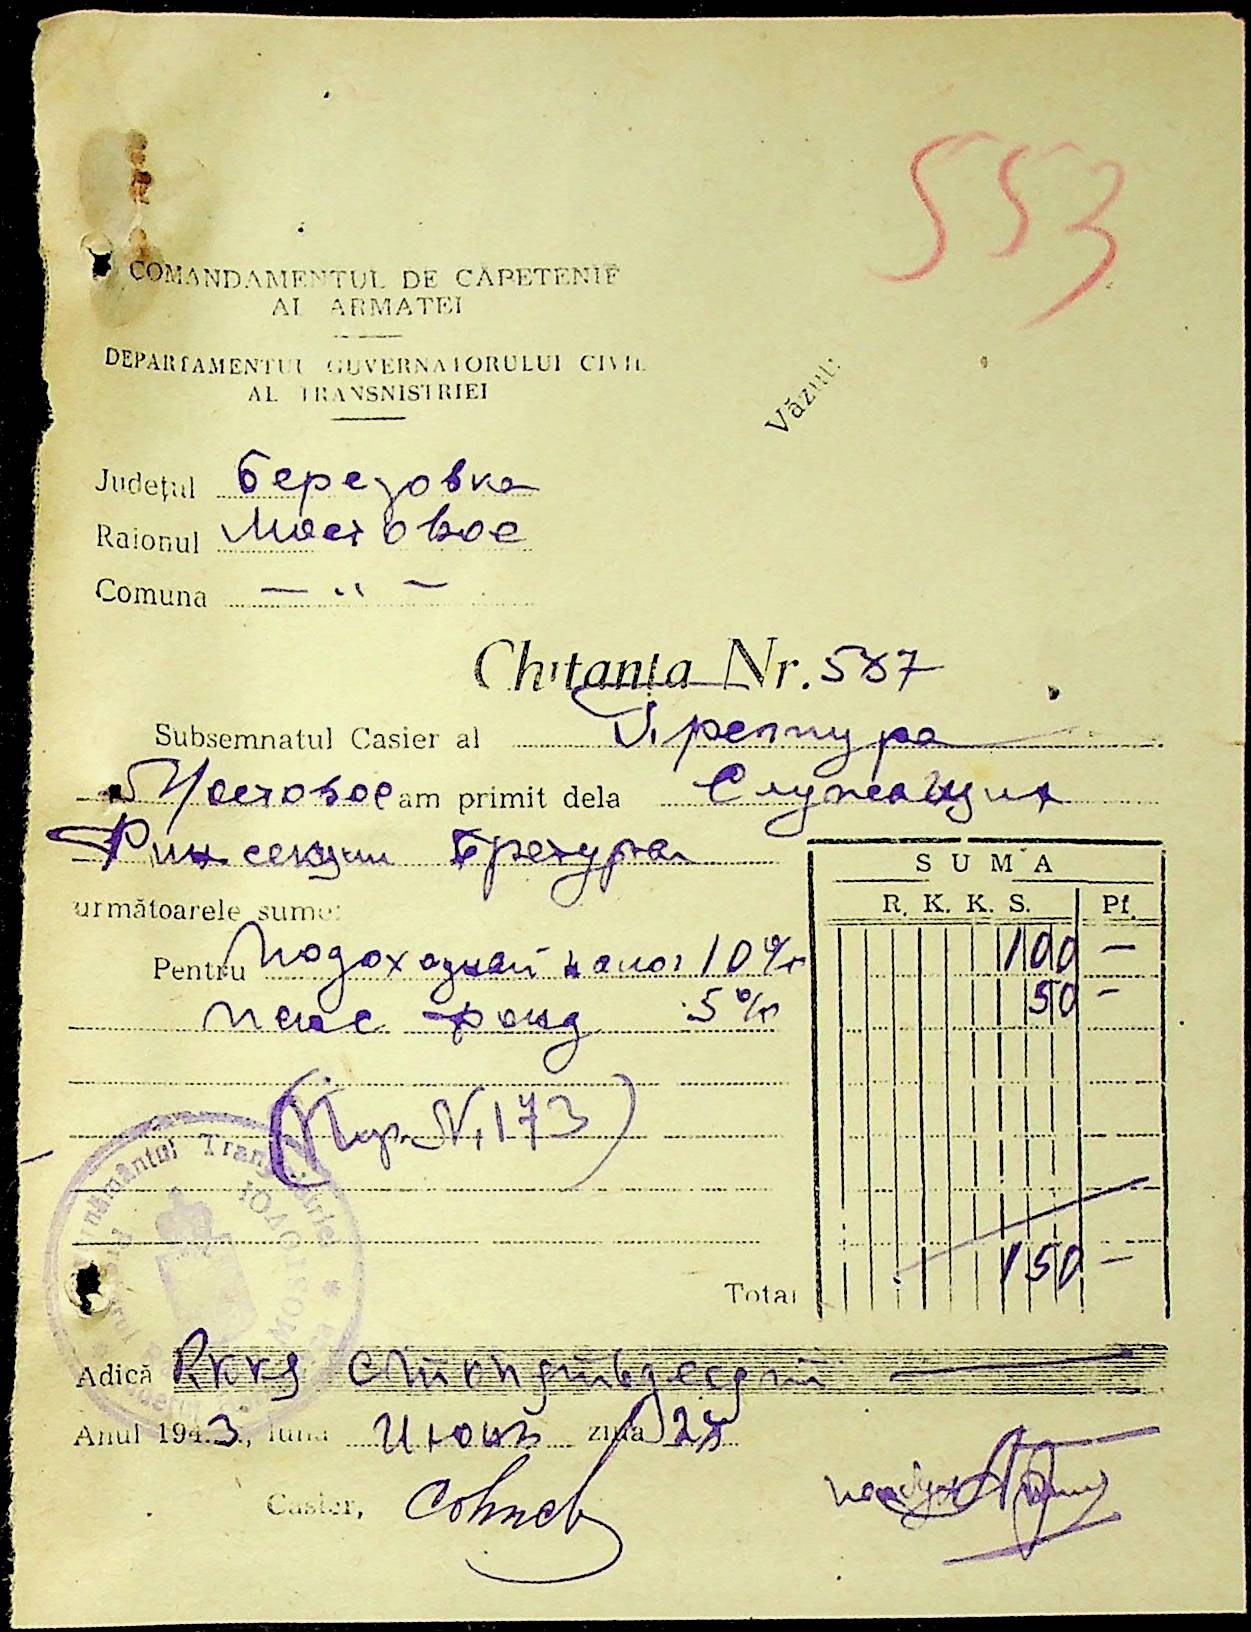 553
COMANDAMENTUL DE CĂPETENIE
AL ARMATEI
DEPARTAMENTUL GUVERNATORULUI CIVIL
AL TRANSNISTRIEI
Văzut:
Județul Березовка
Raionul Мостовое
Comuna — „ —
Chitanța Nr. 587
Subsemnatul Casier al
Мостовое am primit dela Служащих
Фин секции Претуры
SUMA
următoarele sume:
R. K. K. S. Pf.
Pentru Подоходный налог 10% 100 —
пенс фонд 5% 50 —
(Пр. N. 173)
Total 150 —
Adică RKKS стопятьдесят
Anul 1943, luna Июнь ziua 28
Casier,